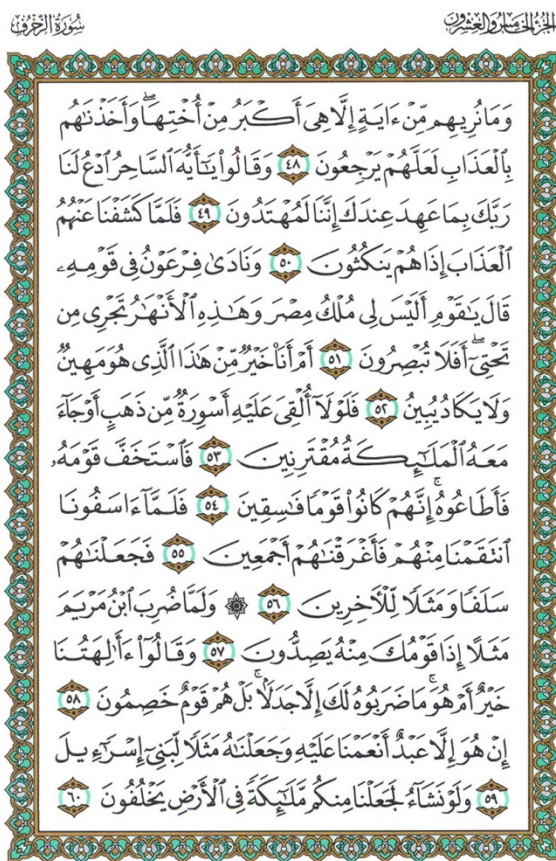 الجزء الخامس والعشرون سورة الزخرف
وَمَا نُرِيهِم مِّنْ ءَايَةٍ إِلَّا هِىَ أَكْبَرُ مِنْ أُخْتِهَا ۖ وَأَخَذْنَٰهُم
بِالْعَذَابِ لَعَلَّهُمْ يَرْجِعُونَ ٤٨ وَقَالُوا۟ يَٰٓأَيُّهَ ٱلسَّاحِرُ ٱدْعُ لَنَا
رَبَّكَ بِمَا عَهِدَ عِندَكَ إِنَّنَا لَمُهْتَدُونَ ٤٩ فَلَمَّا كَشَفْنَا عَنْهُمُ
ٱلْعَذَابَ إِذَا هُمْ يَنكُثُونَ ٥٠ وَنَادَىٰ فِرْعَوْنُ فِى قَوْمِهِۦ
قَالَ يَٰقَوْمِ أَلَيْسَ لِى مُلْكُ مِصْرَ وَهَٰذِهِ ٱلْأَنْهَٰرُ تَجْرِى مِن
تَحْتِىٓ ۖ أَفَلَا تُبْصِرُونَ ٥١ أَمْ أَنَا۠ خَيْرٌ مِّنْ هَٰذَا ٱلَّذِى هُوَ مَهِينٌ
وَلَا يَكَادُ يُبِينُ ٥٢ فَلَوْلَآ أُلْقِىَ عَلَيْهِ أَسْوِرَةٌ مِّن ذَهَبٍ أَوْ جَآءَ
مَعَهُ ٱلْمَلَٰٓئِكَةُ مُقْتَرِنِينَ ٥٣ فَٱسْتَخَفَّ قَوْمَهُۥ
فَأَطَاعُوهُ ۚ إِنَّهُمْ كَانُوا۟ قَوْمًا فَٰسِقِينَ ٥٤ فَلَمَّآ ءَاسَفُونَا
ٱنتَقَمْنَا مِنْهُمْ فَأَغْرَقْنَٰهُمْ أَجْمَعِينَ ٥٥ فَجَعَلْنَٰهُمْ
سَلَفًا وَمَثَلًا لِّلْءَاخِرِينَ ٥٦ ۞ وَلَمَّا ضُرِبَ ٱبْنُ مَرْيَمَ
مَثَلًا إِذَا قَوْمُكَ مِنْهُ يَصِدُّونَ ٥٧ وَقَالُوٓا۟ ءَأَٰلِهَتُنَا
خَيْرٌ أَمْ هُوَ ۚ مَا ضَرَبُوهُ لَكَ إِلَّا جَدَلًۢا ۚ بَلْ هُمْ قَوْمٌ خَصِمُونَ ٥٨
إِنْ هُوَ إِلَّا عَبْدٌ أَنْعَمْنَا عَلَيْهِ وَجَعَلْنَٰهُ مَثَلًا لِّبَنِىٓ إِسْرَٰٓءِيلَ
٥٩ وَلَوْ نَشَآءُ لَجَعَلْنَا مِنكُم مَّلَٰٓئِكَةً فِى ٱلْأَرْضِ يَخْلُفُونَ ٦٠